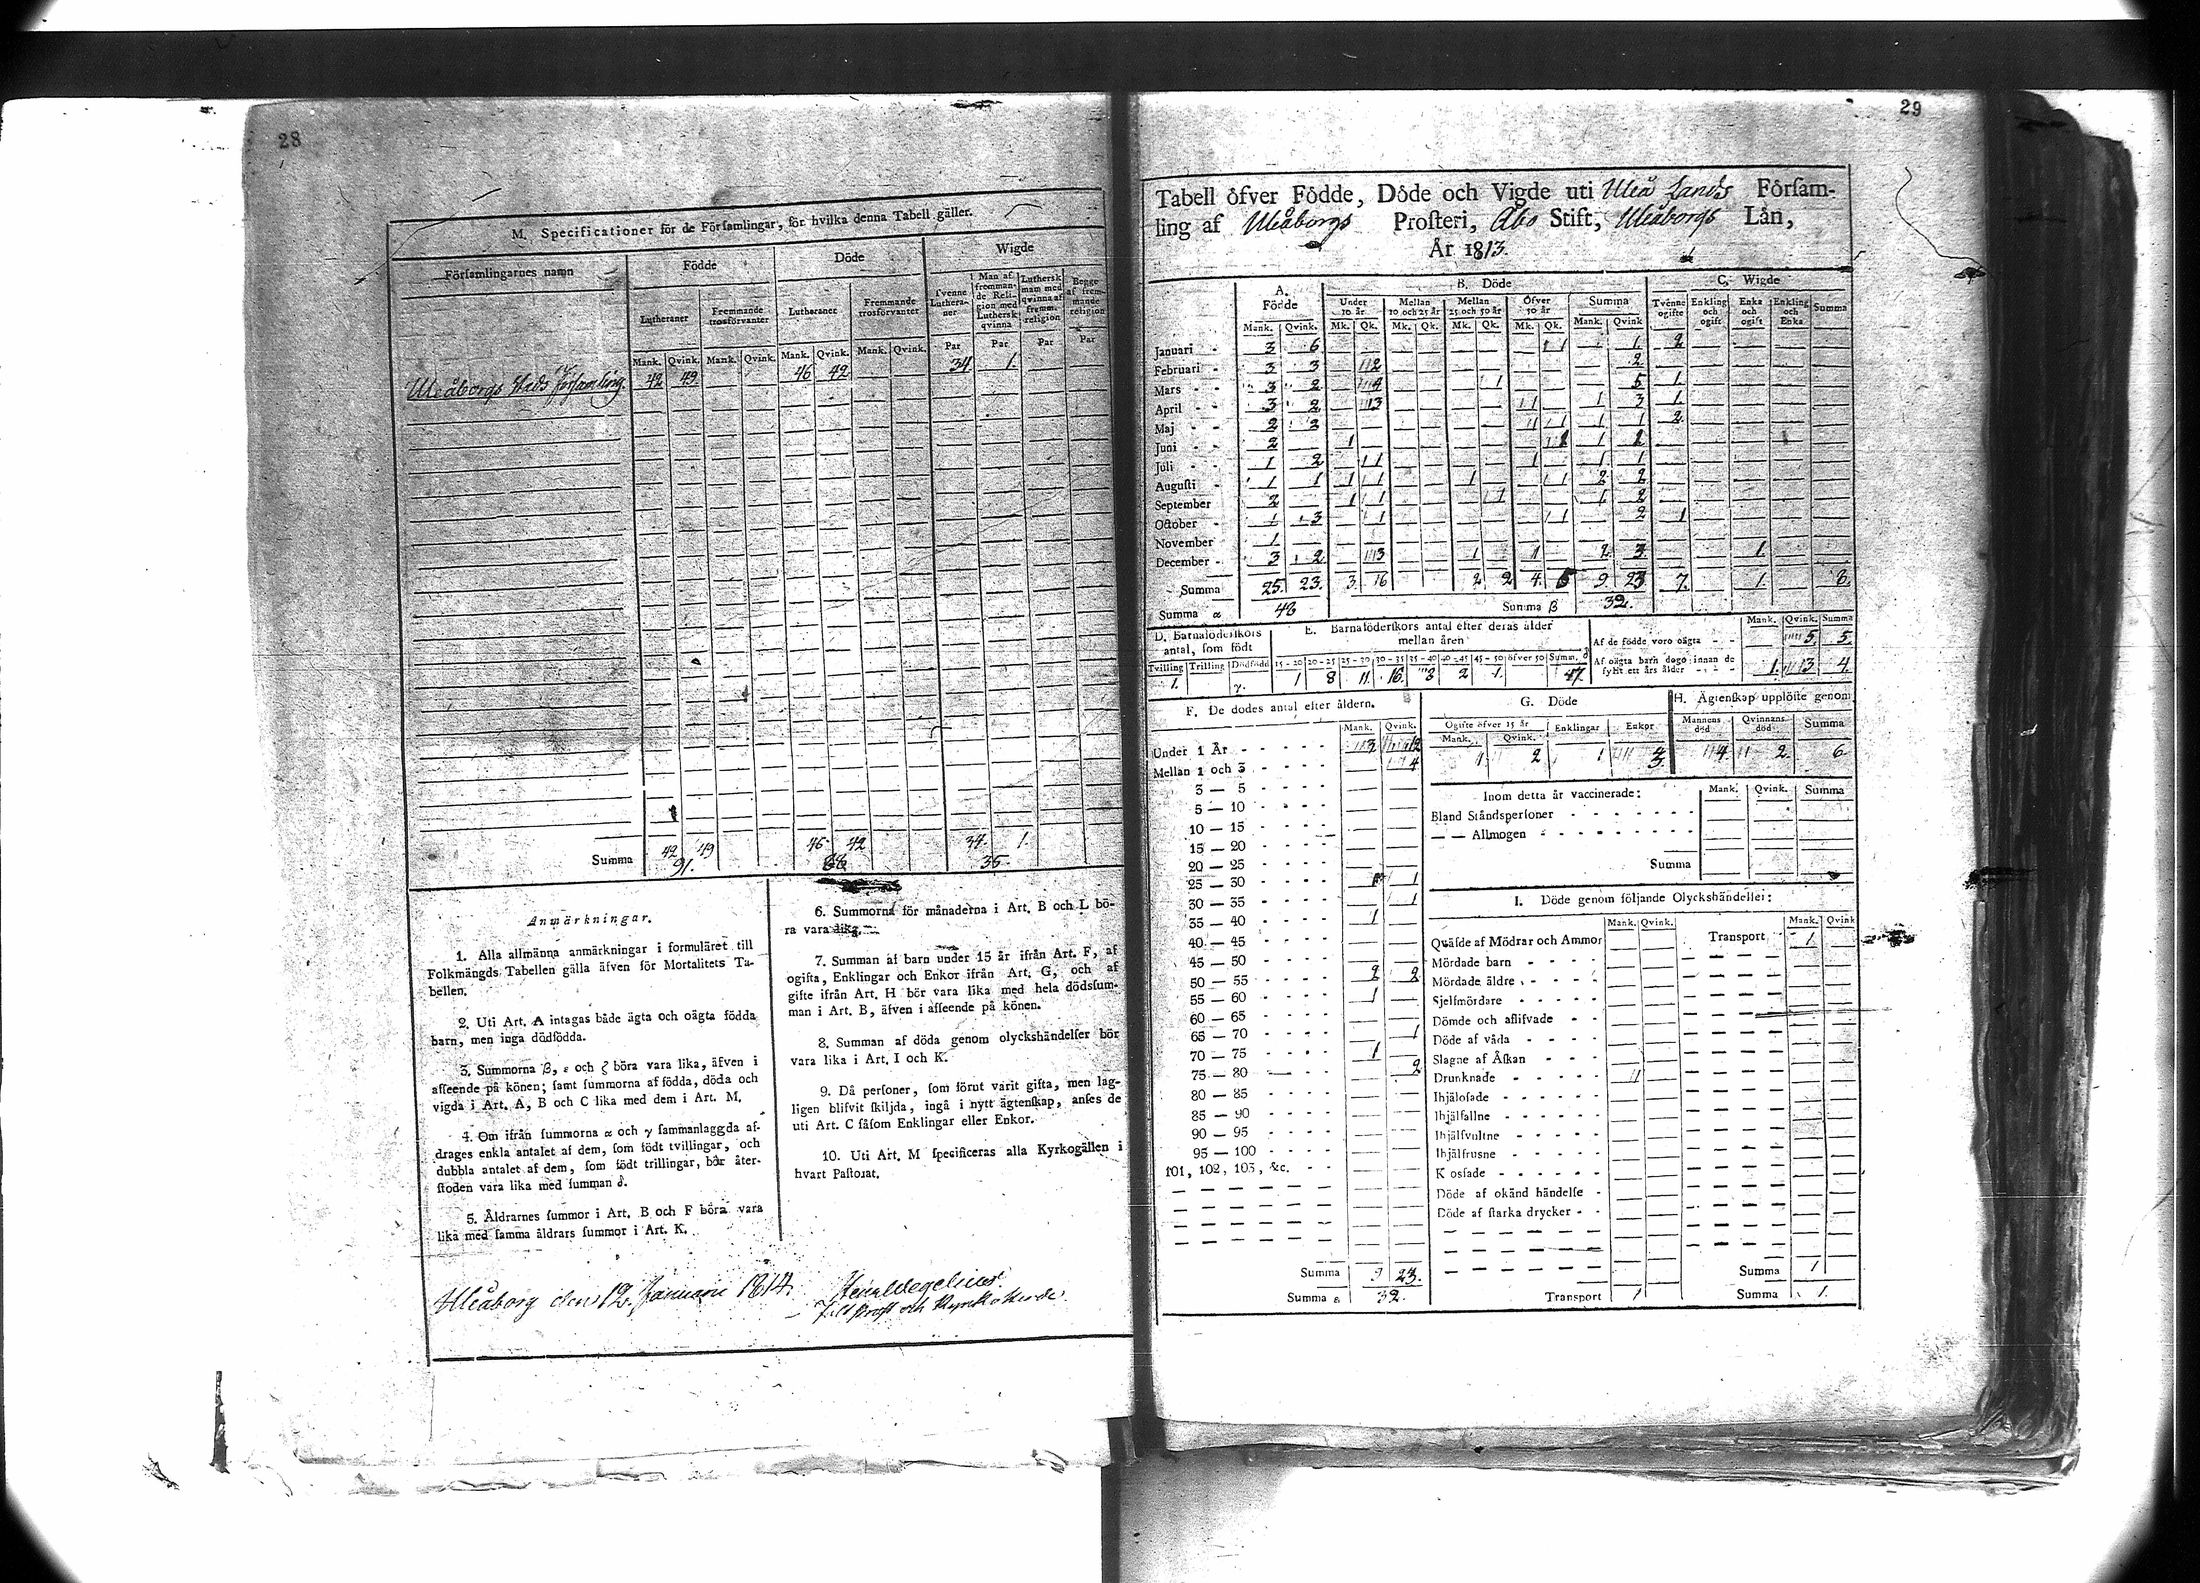 28
M. Specificationer för de Församlingar, för hvilka denna Tabell gäller.
Församlingarnes namn
Födde
Döde
Wigde
Lutheraner
Fremmande trosförvanter
Lutheraner
Fremmande trosförvanter
Tvenne Lutheraner
Man af fremmande Religion med Luthersk qvinna
Luthersk man med qvinna af fremm. religion
Begge af fremmande religion
Mank. Qvink. Mank. Qvink. Mank. Qvink. Mank. Qvink. Par Par Par Par
Uleåborgs Stads församling. 42 49 46 42 34 1.
Summa 42 49 46 42 34. 1.
91. 88 35.
Anmärkningar.
1. Alla allmänna anmärkningar i formuläret till
Folkmängds Tabellen gälla äfven för Mortalitets Ta-
bellen.
2. Uti Art. A intagas både ägta och oägta födda
barn, men inga dödfödda.
3. Summorna β, ε och ζ böra vara lika, äfven i
afseende på könen; samt summorna af födda, döda och
vigda i Art. A, B och C lika med dem i Art. M.
4. Om ifrån summorna α och γ sammanlaggda af-
drages enkla antalet af dem, som födt tvillingar, och
dubbla antalet af dem, som födt trillingar, bör åter-
stoden vara lika med summan δ.
5. Åldrarnes summor i Art. B och F böra vara
lika med samma åldrars summor i Art. K.
6. Summorna för månaderna i Art. B och L bö-
ra vara lika.
7. Summan af barn under 15 år ifrån Art. F, af
ogifta, Enklingar och Enkor ifrån Art. G, och af
gifte ifrån Art. H bör vara lika med hela dödssum-
man i Art. B, äfven i afseende på könen.
8. Summan af döda genom olyckshändelser bör
vara lika i Art. I och K.
9. Då personer, som förut varit gifta, men lag-
ligen blifvit skiljda, ingå i nytt ägtenskap, anses de
uti Art. C såsom Enklingar eller Enkor.
10. Uti Art. M specificeras alla Kyrkogällen i
hvart Pastorat.
Uleåborg den 12 Januarii 1814.
29
Tabell öfver Födde, Döde och Vigde uti Uleå Lands Församling
ling af Uleåborgs Prosteri, Åbo Stift, Uleåborgs Län,
År 1813.
A. Födde
B. Döde
C. Wigde
Under 10 år
Mellan 10 och 25 år
Mellan 25 och 50 år
Öfver 50 år
Summa
Tvenne ogifte
Enkling och ogift
Enka och ogift
Enkling och Enka
Summa
Mank. Qvink. Mk. Qk. Mk. Qk. Mk. Qk. Mk. Qk. Mank. Qvink
Januari 3 6 1 1 2
Februari 3 3 2 2
Mars 3 2 4 1 5 1.
April 3 2 3 1 1 3 1.
Maj 2 3 1 1 1 1 2
Juni 2 1
Juli 1 2 1 1 1 1
Augusti 1 1 1 1 1 1 2 2
September 2 1 1 1 1 2
October 1 3 1 1 2 1
November 1
December 3 2 3 1 1 2 3 1.
Summa 25. 23. 3. 16 2 2 4. 5 9. 23 7. 1. 8.
Summa α 48
Summa β 32.
D. Barnaföderskors antal, som födt
Tvilling Trilling Dödfödd
1. γ.
E. Barnaföderskors antal efter deras ålder mellan åren
15-20 20-25 25-30 30-35 35-40 40-45 45-50 öfver 50 Summ. δ
1 8 11. 16. 8 2 1. 47.
Mank. Qvink. Summa
Af de födde voro oägta - - 5. 5.
Af oägta barn dogo innan de
fyllt ett års ålder - - - 1. 3 4.
F. De dödes antal efter åldern.
Mank. Qvink.
Under 1 År 3 12
Mellan 1 och 3 4
3 — 5
5 — 10
10 — 15
15 — 20
20 — 25
25 — 30 1 1
30 — 35 1
35 — 40 1
40 — 45
45 — 50
50 — 55 2 2
55 — 60 1
60 — 65
65 — 70 1
70 — 75 1
75 — 80 2
80 — 85
85 — 90
90 — 95
95 — 100
101, 102, 103, &c.
Summa 9 23.
Summa ε 32.
G. Döde
Ogifte öfver 15 år
Enklingar
Enkor
Mank. Qvink.
1. 2 1
H. Ägtenskap upplöste genom
Mannens död
Qvinnans död
Summa
4 2. 6.
Inom detta år vaccinerade:
Mank. Qvink. Summa
Bland Ståndspersoner
— — Allmogen
Summa
I. Döde genom följande Olyckshändelser:
Mank. Qvink. Mank. Qvink
Qväfde af Mödrar och Ammor
Transport 1
Mördade barn
Mördade äldre
Sjelfmördare
Dömde och aflifvade
Döde af våda
Slagne af Åskan
Drunknade 1
Ihjälosade
Ihjälfallne
Ihjälsvultne
Ihjälfrusne
Krossade
Döde af okänd händelse
Döde af starka drycker
Summa 1
Transport 1
Summa 1.